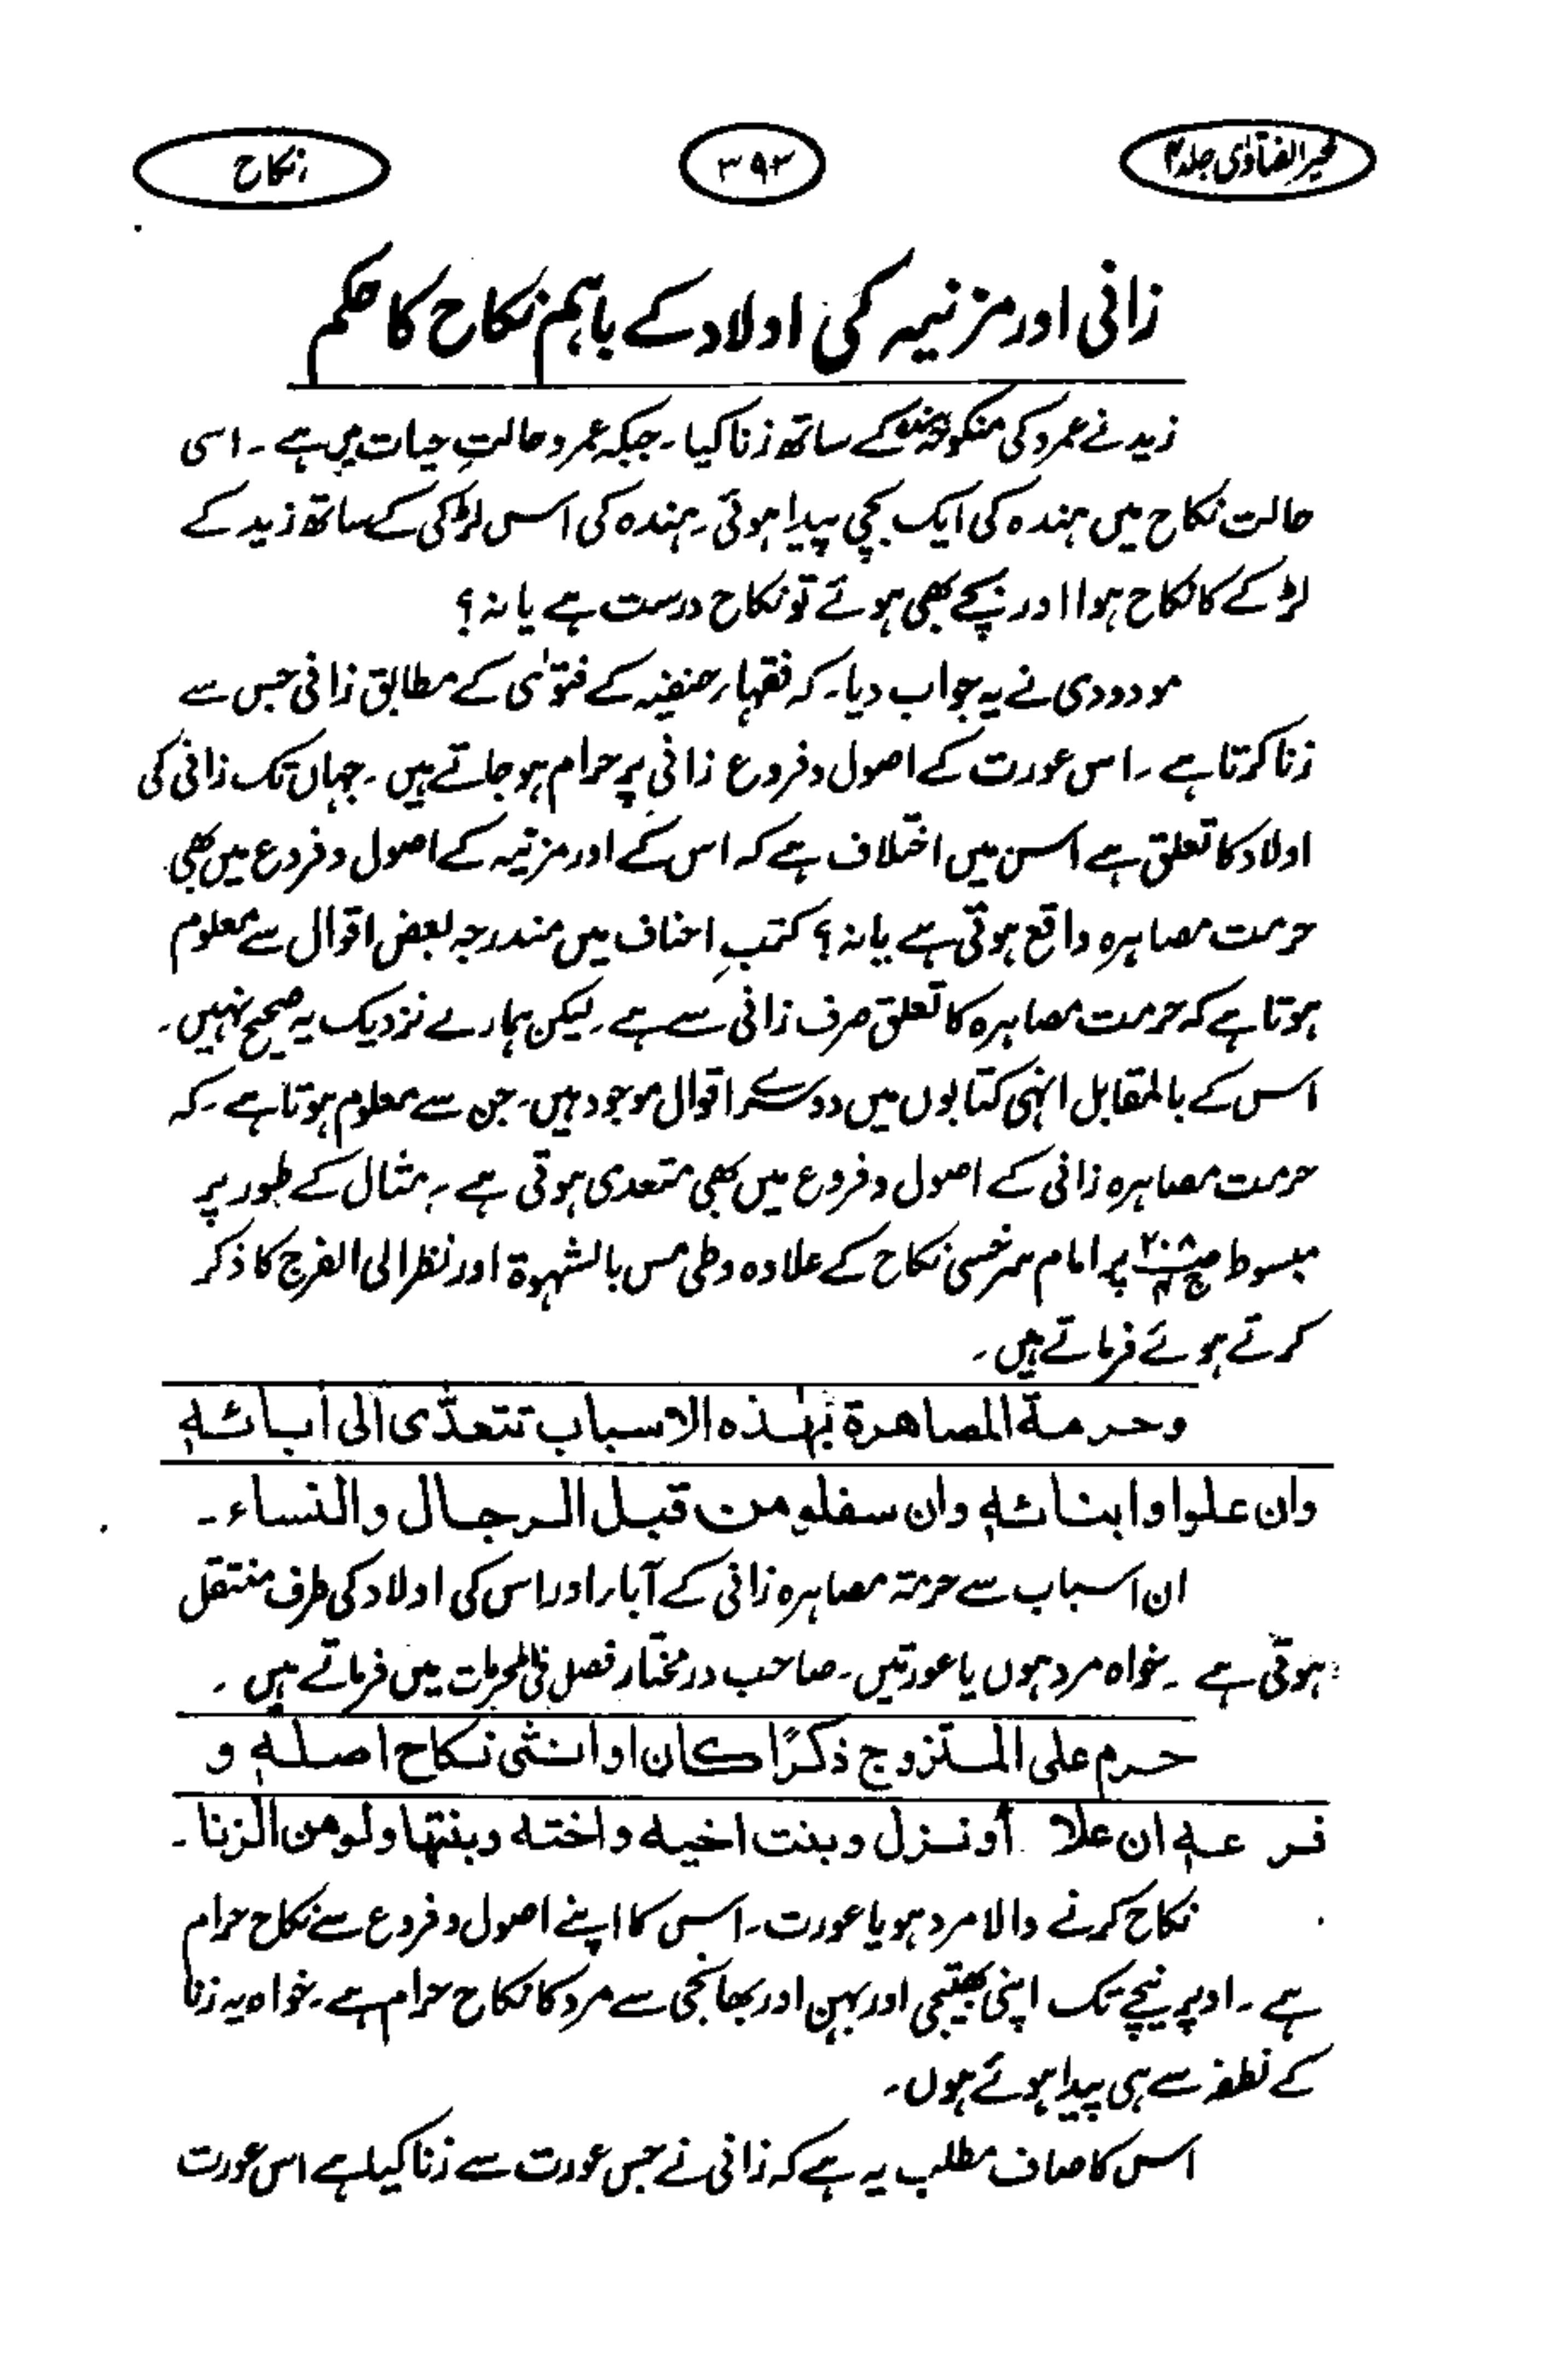 خیر الفتاوی جلد ۴
۳۹۲
نکاح
زانی اور مزنیہ کی اولاد کے باہم نکاح کا حکم
زید نے عمرو کی منکوحہ ہندہ کے ساتھ زنا کیا۔ جبکہ عمرو حالتِ حیات میں ہے۔ اسی
حالت نکاح میں ہندہ کی ایک بچی پیدا ہوئی۔ ہندہ کی اس لڑکی کے ساتھ زید کے
لڑکے کا نکاح ہوا اور بچے بھی ہوئے تو نکاح درست ہے یا نہ؟
مودودی نے یہ جواب دیا۔ کہ فقہاء حنفیہ کے فتوٰی کے مطابق زانی جس سے
زنا کرتا ہے۔ اس عورت کے اصول و فروع زانی پر حرام ہو جاتے ہیں۔ جہاں تک زانی کی
اولاد کا تعلق ہے اس میں اختلاف ہے کہ اس کے اور مزنیہ کے اصول و فروع میں بھی
حرمت مصاہرہ واقع ہوتی ہے یا نہ؟ کتبِ احناف میں مندرجہ بعض اقوال سے معلوم
ہوتا ہے کہ حرمت مصاہرہ کا تعلق صرف زانی سے ہے۔ لیکن ہمارے نزدیک یہ صحیح نہیں۔
اس کے بالمقابل انہی کتابوں میں دوسرے اقوال موجود ہیں۔ جن سے معلوم ہوتا ہے۔ کہ
حرمت مصاہرہ زانی کے اصول و فروع میں بھی متعدی ہوتی ہے۔ مثال کے طور پر
مبسوط ص۲۰۸ ج۴ پر امام سرخسی نکاح کے علاوہ وطی مس بالشہوۃ اور نظر الی الفرج کا ذکر
کرتے ہوئے فرماتے ہیں۔
وحرمة المصاهرة بهٰذه الاسباب تتعدّی الی اٰبائه
وان علوا وابنائه وان سفلو من قبل الرجال والنساء۔
ان اسباب سے حرمۃ مصاہرہ زانی کے آباء اور اس کی اولاد کی طرف منتقل
ہوتی ہے۔ خواہ مرد ہوں یا عورتیں۔ صاحب درمختار فصل فی المحرمات میں فرماتے ہیں۔
حرم علی المتزوج ذکرًا کان او انثی نکاح اصله و
فرعه ان علا أو نزل وبنت اخیه واخته وبنتها ولو من الزنا۔
نکاح کرنے والا مرد ہو یا عورت۔ اس کا اپنے اصول و فروع سے نکاح حرام
ہے۔ اوپر نیچے تک اپنی بھتیجی اور بہن اور بھانجی سے مرد کا نکاح حرام ہے۔ خواہ یہ زنا
کے نطفہ سے ہی پیدا ہوئے ہوں۔
اس کا صاف مطلب یہ ہے کہ زانی نے جس عورت سے زنا کیا ہے اس عورت